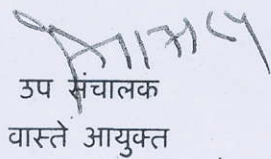 उप संचालक
वास्ते आयुक्त